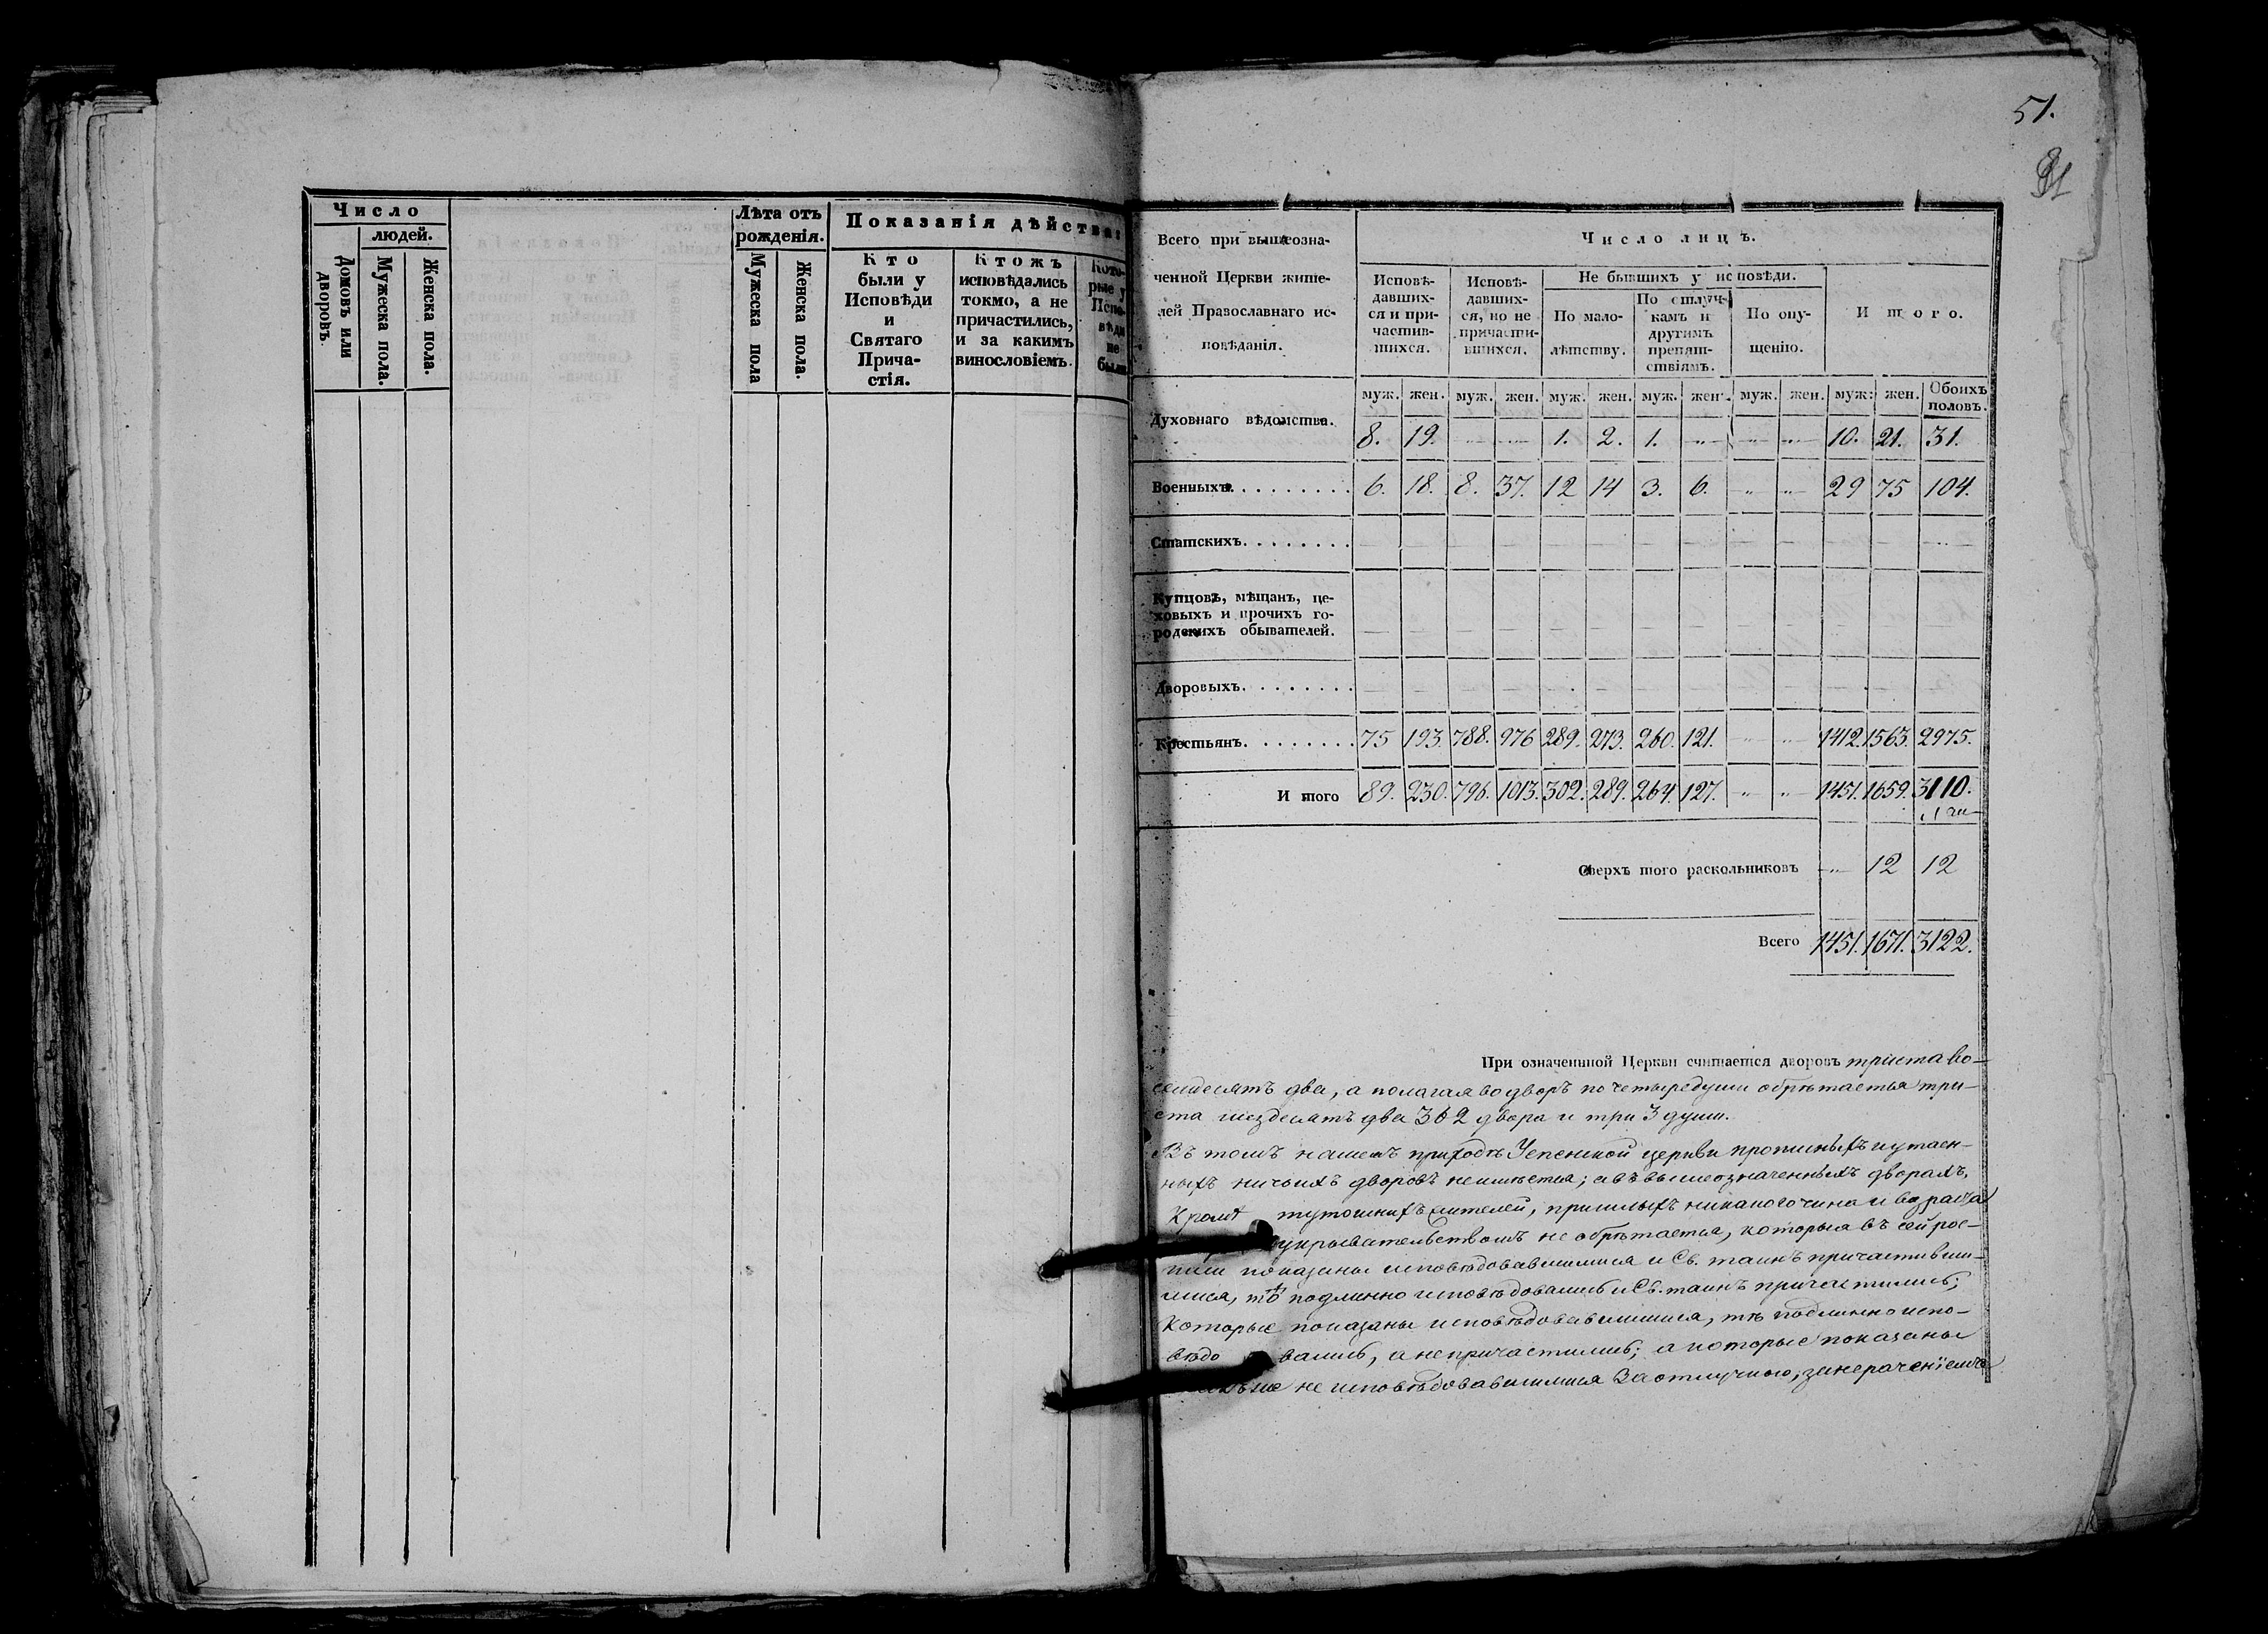 51.
Число
людей.
Домовъ или дворовъ.
Мужеска пола.
Женска пола.
Лѣта отъ рожденія.
Мужеска пола
Женска пола.
Показанія дѣйства:
Кто
были у
Исповѣди
и
Святаго
Прича-
стія.
Ктожъ
исповѣдались
токмо, а не
причастились,
и за какимъ
винословіемъ.
Кото-
рые у
Испо-
вѣди
не
были.
Всего при вышеозна-
ченной Церкви жите-
лей Православнаго ис-
повѣданія.
Число лицъ.
Исповѣ-
давших-
ся и при-
частив-
шихся.
Исповѣ-
давших-
ся, но не
причасти-
вшихся.
Не бывшихъ у исповѣди.
По мало-
лѣтству.
По отлуч-
камъ и
другимъ
препят-
ствіямъ.
По опу-
щенію.
Итого.
муж. жен. муж. жен. муж. жен. муж. жен. муж. жен. муж: жен. Обоихъ половъ.
Духовнаго вѣдомства. 8. 19. 1. 2. 1. 10. 21. 31.
Военныхъ. 6. 18. 8. 37. 12 14 3. 6. 29 75 104.
Статскихъ.
Купцовъ, мѣщанъ, це-
ховыхъ и прочихъ го-
родскихъ обывателей.
Дворовыхъ.
Крестьянъ. 75 193. 788. 976 289. 273. 260. 121. 1412. 1563. 2975.
Итого 89. 230. 796. 1013. 302. 289. 264. 127. 1451. 1659. 3110.
Сверхъ того раскольниковъ 12 12
Всего 1451. 1671. 3122.
При означенной Церкви считается дворовъ триста во-
семдесятъ два, а полагая во дворъ по четыре души обрѣтается три-
ста шездесятъ два 362 двора и три 3 души.
Въ томъ нашемъ приходѣ Успенской церкви прописныхъ и утаен-
ныхъ ничьихъ дворовъ неимѣется; а въ вышеозначенныхъ дворахъ,
кромѣ тутошнихъ жителей, пришлыхъ никакого чина и возраста
укрывательствомъ не обрѣтается, которыя въ сей рос-
писи показаны исповѣдовавшимися и Св. таинъ причастивши-
мися, тѣ подлинно исповѣдовались и Св. таинъ причастились;
которые показаны исповѣдовавшимися, тѣ подлинно испо-
вѣдовались, а непричастились; а которые показаны
не исповѣдовавшимися за отлучкою, за нераченіемъ